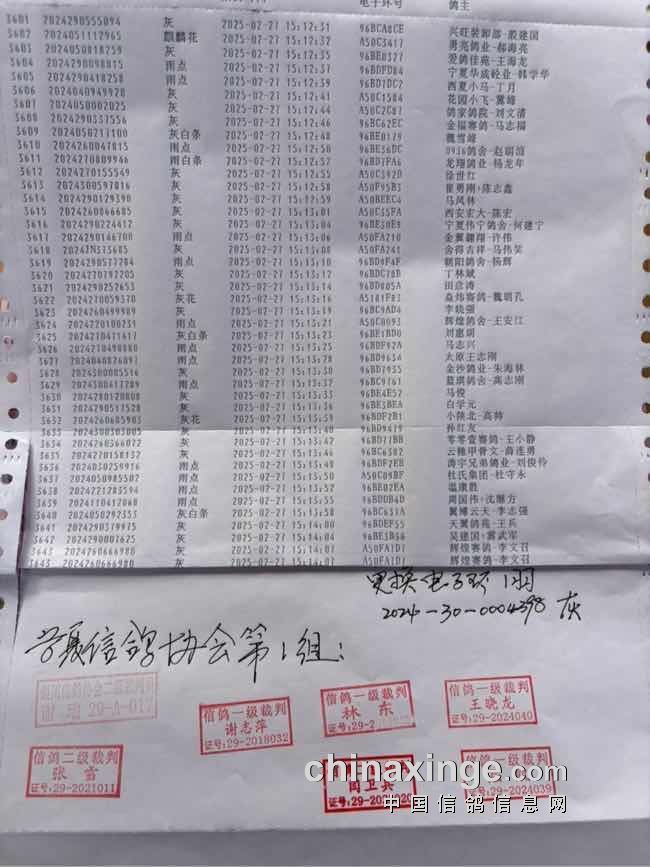 电子环号 鸽主
3601 2024290555094 灰 2025-02-27 15:12:31 96BCA8CE 兴旺装卸部-殷建国
3602 2024051112965 麒麟花 2025-02-27 15:12:32 A50C3417 勇亮鸽业-郝海亮
3603 2024050818259 灰 2025-02-27 15:12:33 96BE0327 爱鸽佳苑-王海龙
3604 2024290098815 雨点 96BDFD84 宁夏华成砼业-韩学华
3605 2024290418258 雨点 96BD7DC2 西夏小马-丁月
3606 2024040949920 灰 2025-02-27 15:12:41 A50C1584
3607 2024050002025 灰 2025-02-27 15:12:44 鸽家鸽院-刘文清
3608 2024290337556 灰 2025-02-27 15:12:46 96BC62EC 金福赛鸽-马志福
3609 2024050211100 灰白条 2025-02-27 15:12:48 96BE0179 魏雪峰
3610 2024260047815 雨点 2025-02-27 15:12:50 96BE36DC
3611 2024270809946 雨白条 2025-02-27 15:12:57 96BD7FA6 龙翔鸽业-杨龙年
3612 2024270155549 灰 2025-02-27 15:12:58 A50C592D 徐世红
3613 2024300597816 灰 2025-02-27 15:12:58 A50F95B3 崔勇刚;陈志鑫
3614 2024290129390 灰 2025-02-27 15:12:59 A50BEEC4 马风林
3615 2024260066685 灰 2025-02-27 15:13:01 A50C55FA 西安宏大-陈宏
3616 2024290224412 灰 2025-02-27 15:13:04 宁夏伟宁鸽舍-何建宁
3617 2024290146700 雨点 2025-02-27 15:13:06 A50FA210 金翼翱翔-许伟
3618 灰 2025-02-27 15:13:08 A50C4248
3619 2024290577784 雨点 2025-02-27 15:13:10 96BD9F4F 朝阳鸽舍-杨辉
3620 2024270797205 灰 2025-02-27 15:13:12 96BDC70B 丁林斌
3621 2024290252653 灰 2025-02-27 15:13:14 96BD005A 田彦涛
3622 2024270059370 灰花 2025-02-27 15:13:16 A5181F83 焱炜赛鸽-魏明孔
3623 2024260499989 灰 2025-02-27 15:13:19 96BC9AD4 李晓强
3624 2024220100231 雨点 2025-02-27 15:13:21 A50C0093 辉煌鸽舍-王安江
3625 灰白条 2025-02-27 15:13:21 96BE1BD0
3626 2024270498080 雨点 96BDF92A 马志兴
3627 雨点 96BD9654 太原王志刚
3628 2024300085516 灰 96BD7935 金沙鸽业-朱海林
3629 2024300417289 雨点 96BC9761 蓝琪鸽舍-高志刚
3630 2024280120808 灰 96BE4E57 马俊
3631 2024290517528 灰 96BE3BEA 白学元
3632 2024260605903 灰花 96BDF2B1 小陕北-高帅
3633 2024300303005 灰 96BD9619 孙红友
3634 2024260366072 灰 2025-02-27 15:13:42 96BD77BB 零零壹赛鸽-王小静
3635 2024270158132 灰 2025-02-27 15:13:46 96BC6302 云艳甲骨文-薛连勇
3636 2024030259916 雨点 2025-02-27 15:13:48 96BDF2EB 涛宇兄弟鸽业-刘俊伶
3637 2024050985502 雨点 2025-02-27 15:13:50 A50C08BF 杜氏集团-杜守永
3638 2024221283594 雨点 2025-02-27 15:13:52 96BE02EA 温康胜
3639 2024110412068 雨点 2025-02-27 15:13:55 96BDDB4D 周国伟;沈顺方
3640 2024050292353 灰白条 2025-02-27 15:13:58 96BC631A 翼博云天-李志强
3641 2024290379975 灰 2025-02-27 15:14:00 96BDEF55 天翼鸽苑-王兵
3642 2024290007625 灰 2025-02-27 15:14:00 96BE3B56 吴建国;雷武军
3643 2024260666980 灰 2025-02-27 15:14:01 A50FA1D1 辉煌赛鸽-李文召
3643 2024260666980 灰 2025-02-27 15:14:01 A50FA1D1 辉煌赛鸽-李文召
更换电子环1羽
2024-30-0004398 灰
宁夏信鸽协会第1组:
29-A-017
信鸽一级裁判
谢志萍
证号:29-2018032
信鸽一级裁判
林东
信鸽一级裁判
王晓龙
证号:29-2024040
信鸽二级裁判
张雪
证号:29-2021011
闫卫兵
信鸽一级裁判
证号:29-2024039
chinaxinge.com
中国信鸽信息网